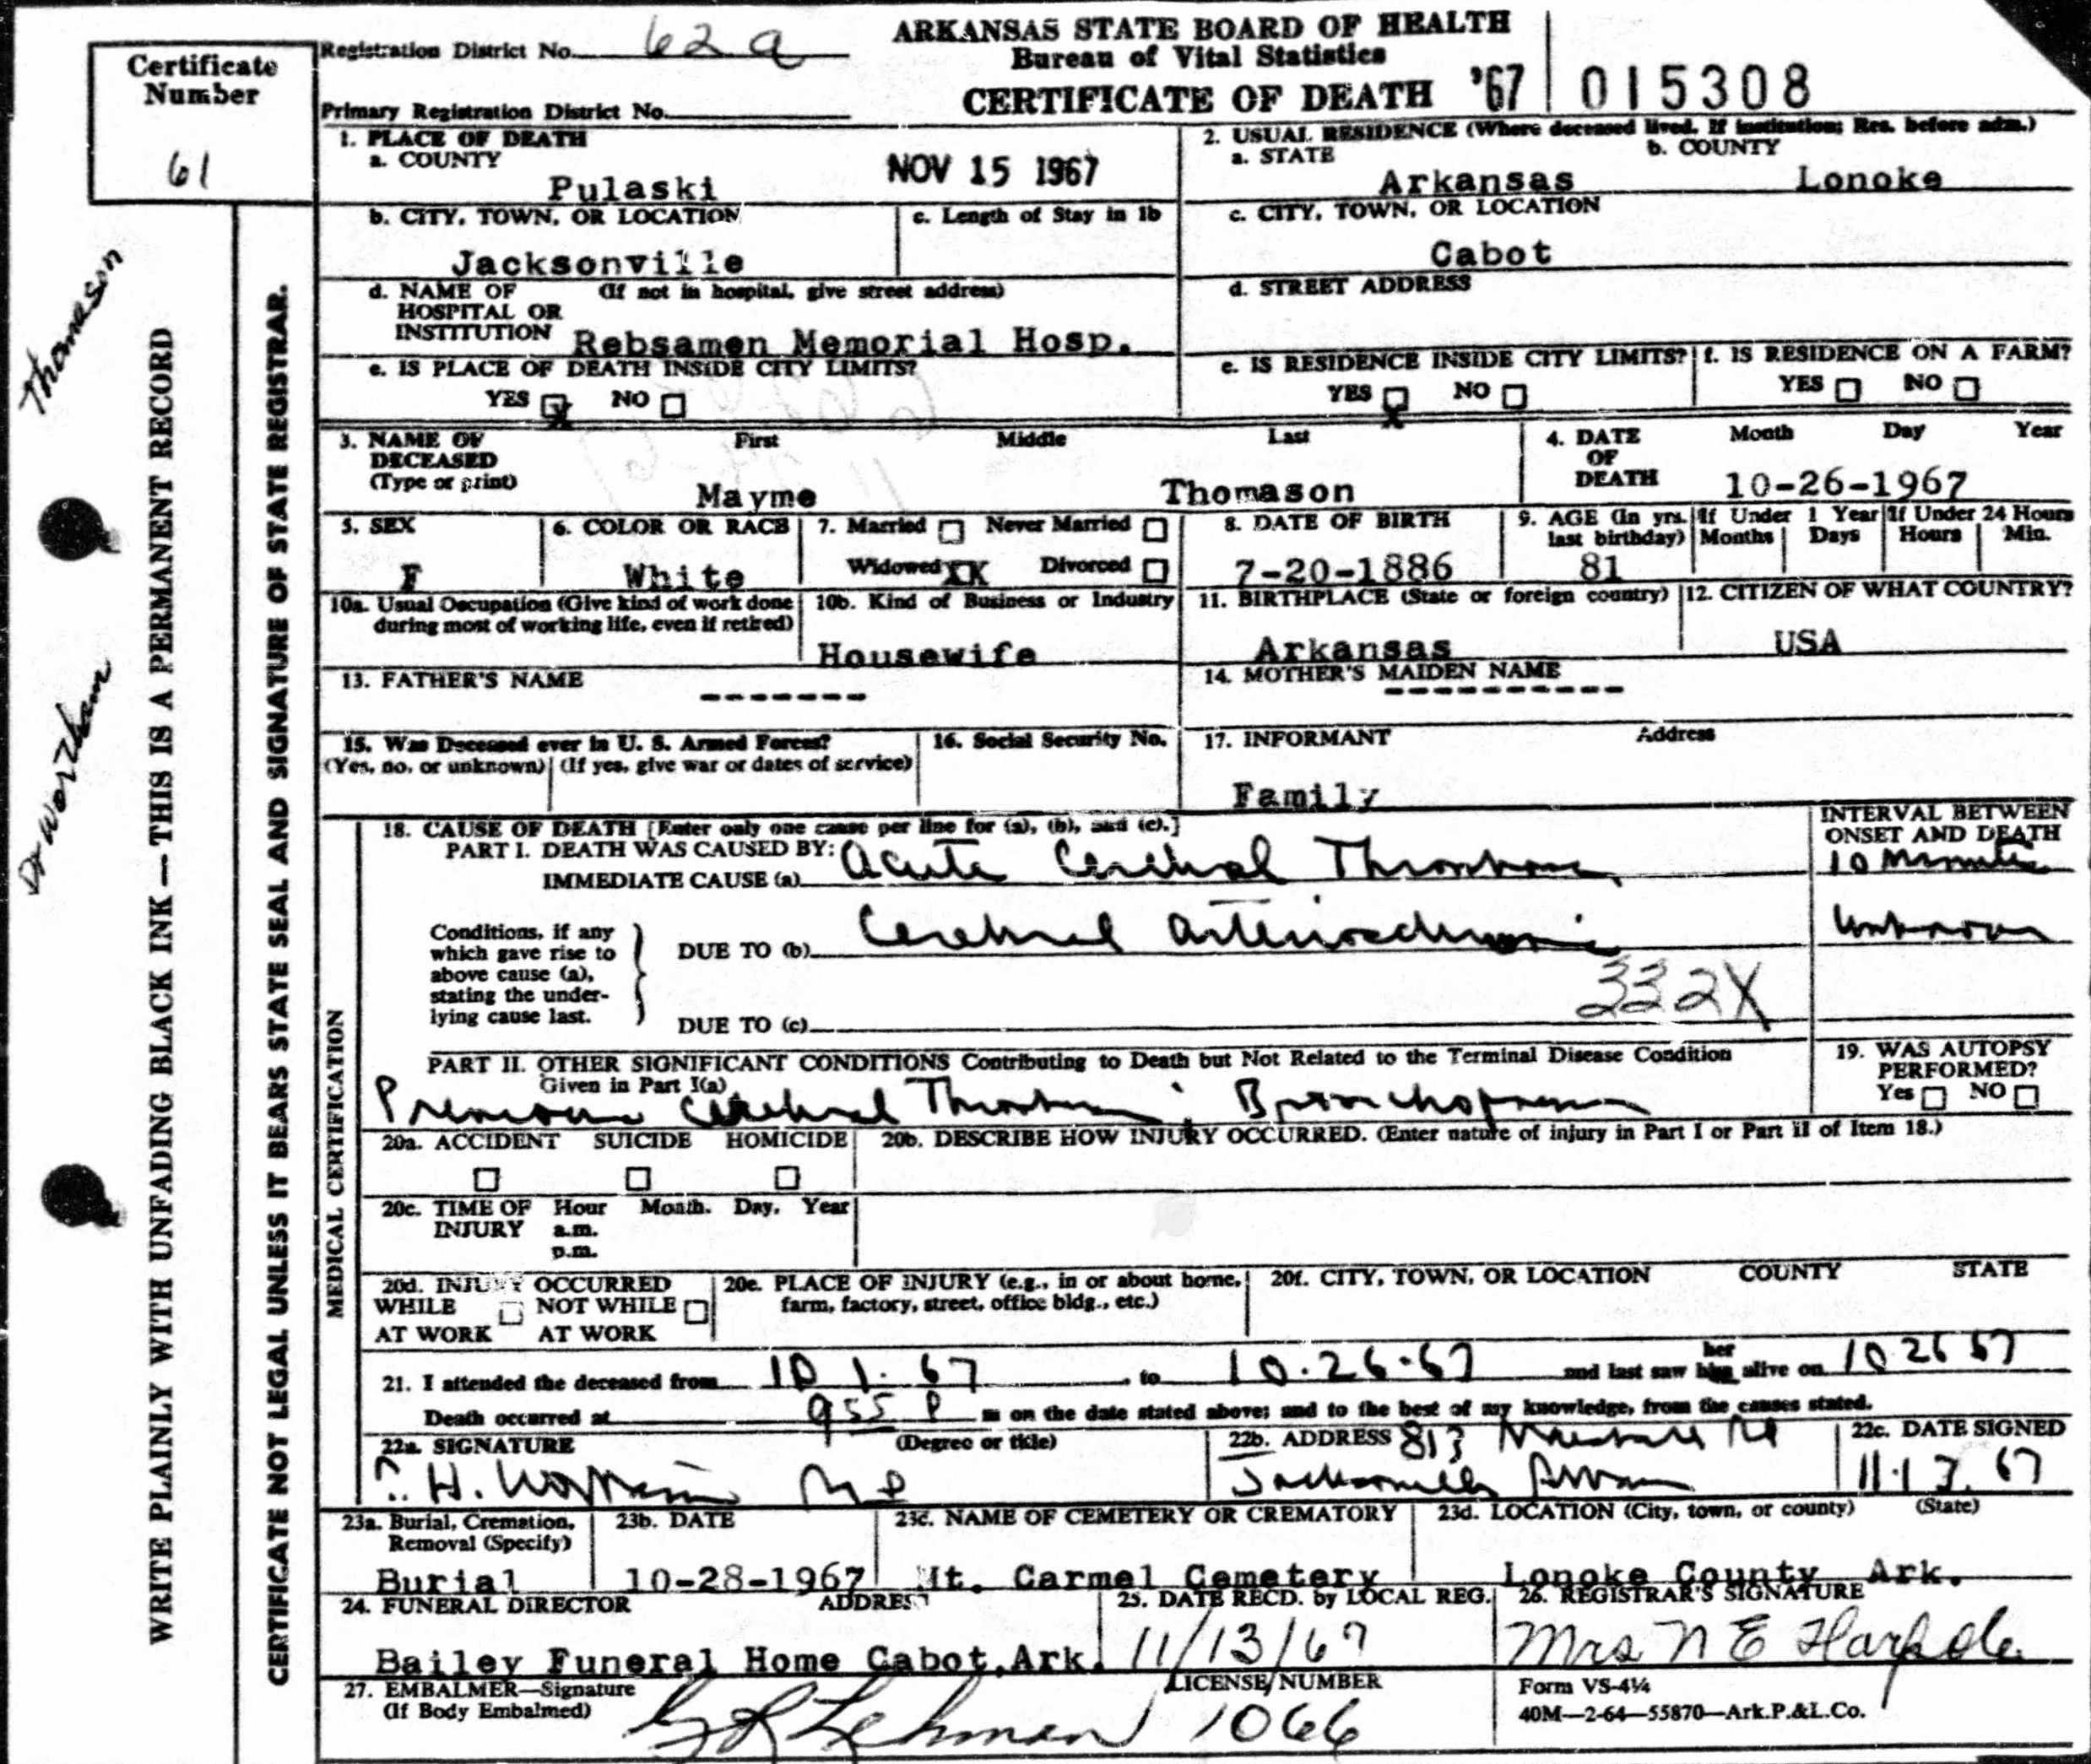 Certificate Number
61
Registration District No. 62 a
Primary Registration District No.
ARKANSAS STATE BOARD OF HEALTH
Bureau of Vital Statistics
CERTIFICATE OF DEATH '67 015308
1. PLACE OF DEATH
a. COUNTY
Pulaski
NOV 15 1967
2. USUAL RESIDENCE (Where deceased lived. If institution: Res. before adm.)
a. STATE
b. COUNTY
Arkansas
Lonoke
b. CITY, TOWN, OR LOCATION
Jacksonville
c. Length of Stay in 1b
c. CITY, TOWN, OR LOCATION
Cabot
d. NAME OF (If not in hospital, give street address)
HOSPITAL OR
INSTITUTION Rebsamen Memorial Hosp.
d. STREET ADDRESS
e. IS PLACE OF DEATH INSIDE CITY LIMITS?
YES X NO
e. IS RESIDENCE INSIDE CITY LIMITS?
YES X NO
f. IS RESIDENCE ON A FARM?
YES NO
3. NAME OF DECEASED
(Type or print)
First Middle Last
Mayme Thomason
4. DATE OF DEATH
Month Day Year
10-26-1967
5. SEX
F
6. COLOR OR RACE
White
7. Married Never Married
Widowed XX Divorced
8. DATE OF BIRTH
7-20-1886
9. AGE (In yrs. last birthday)
81
If Under 1 Year
Months Days
If Under 24 Hours
Hours Min.
10a. Usual Occupation (Give kind of work done
during most of working life, even if retired)
10b. Kind of Business or Industry
Housewife
11. BIRTHPLACE (State or foreign country)
Arkansas
12. CITIZEN OF WHAT COUNTRY?
USA
13. FATHER'S NAME
-------
14. MOTHER'S MAIDEN NAME
----------
15. Was Deceased ever in U. S. Armed Forces?
(Yes, no, or unknown) (If yes, give war or dates of service)
16. Social Security No.
17. INFORMANT Address
Family
MEDICAL CERTIFICATION
18. CAUSE OF DEATH [Enter only one cause per line for (a), (b), and (c).]
PART I. DEATH WAS CAUSED BY:
IMMEDIATE CAUSE (a) Acute Cerebral Thrombosis
INTERVAL BETWEEN
ONSET AND DEATH
10 Minutes
Conditions, if any
which gave rise to
above cause (a),
stating the under-
lying cause last.
DUE TO (b) Cerebral Arteriosclerosis
Unknown
332X
DUE TO (c)
PART II. OTHER SIGNIFICANT CONDITIONS Contributing to Death but Not Related to the Terminal Disease Condition
Given in Part I(a)
Previous Cerebral Thrombosis; Bronchopneumonia
19. WAS AUTOPSY
PERFORMED?
Yes NO
20a. ACCIDENT SUICIDE HOMICIDE
20b. DESCRIBE HOW INJURY OCCURRED. (Enter nature of injury in Part I or Part II of Item 18.)
20c. TIME OF INJURY
Hour Month. Day, Year
a.m.
p.m.
20d. INJURY OCCURRED
WHILE AT WORK NOT WHILE AT WORK
20e. PLACE OF INJURY (e.g., in or about home,
farm, factory, street, office bldg., etc.)
20f. CITY, TOWN, OR LOCATION COUNTY STATE
21. I attended the deceased from 10 1. 67, to 10.26.67 and last saw her him alive on 10 26 67
Death occurred at 955 P m on the date stated above; and to the best of my knowledge, from the causes stated.
22a. SIGNATURE (Degree or title)
H. MD
22b. ADDRESS 813 Marshall Rd
Jacksonville
22c. DATE SIGNED
11.13.67
23a. Burial, Cremation,
Removal (Specify)
Burial
23b. DATE
10-28-1967
23c. NAME OF CEMETERY OR CREMATORY
Mt. Carmel Cemetery
23d. LOCATION (City, town, or county) (State)
Lonoke County Ark.
24. FUNERAL DIRECTOR ADDRESS
Bailey Funeral Home Cabot,Ark.
25. DATE RECD. by LOCAL REG.
11/13/67
26. REGISTRAR'S SIGNATURE
Mrs N E Harpole
27. EMBALMER—Signature
(If Body Embalmed)
Lehman
LICENSE NUMBER
1066
Form VS-4¼
40M—2-64—55870—Ark.P.&L.Co.
Thomason
Dr Wortham
WRITE PLAINLY WITH UNFADING BLACK INK—THIS IS A PERMANENT RECORD
CERTIFICATE NOT LEGAL UNLESS IT BEARS STATE SEAL AND SIGNATURE OF STATE REGISTRAR.